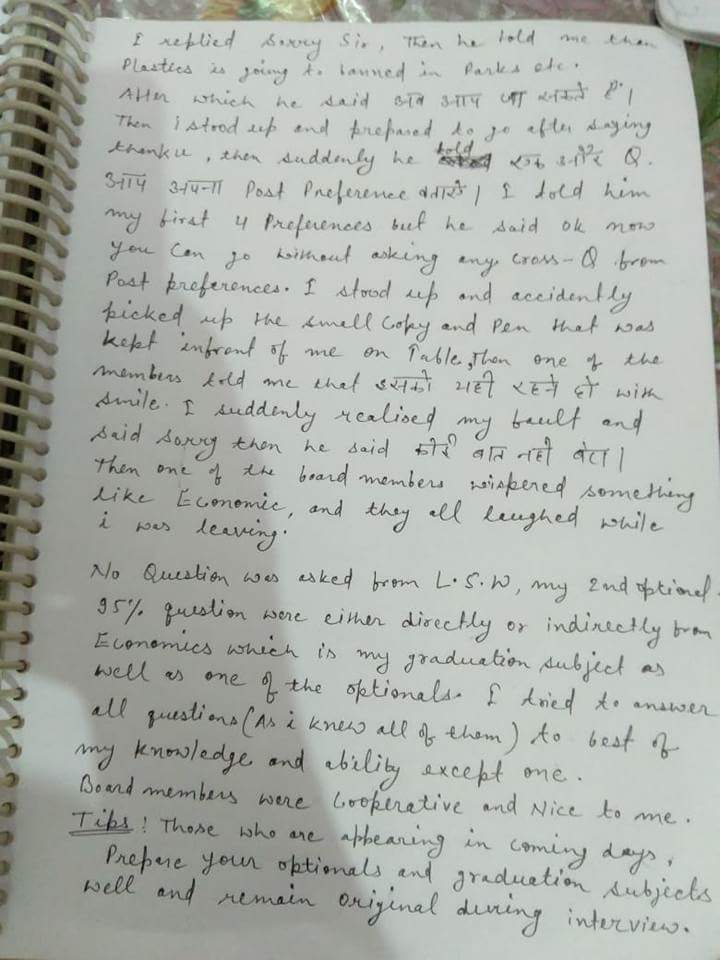 I replied Sorry Sir, Then he told me then
Plastics is going to banned in Parks etc.
After which he said अब आप जा सकते हैं।
Then i stood up and prepared to go after saying
thanku, then suddenly he told एक और Q.
आप अपना Post Preference बताओ। I told him
my first 4 Preferences but he said ok now
you can go without asking any cross-Q from
Post preferences. I stood up and accidently
picked up the small copy and Pen that was
kept infront of me on Table, Then one of the
members told me that इसको यही रहने दो with
smile. I suddenly realised my fault and
said sorry then he said कोई बात नही बेटा।
Then one of the board members wispered something
like Economic, and they all laughed while
i was leaving.
No Question was asked from L.S.W, my 2nd optional.
95% question were either directly or indirectly from
Economics which is my graduation subject as
well as one of the optionals. I tried to answer
all questions (As i knew all of them) to best of
my knowledge and ability except one.
Board members were Cooperative and Nice to me.
Tips! Those who are appearing in coming days,
Prepare your optionals and graduation subjects
well and remain original during interview.